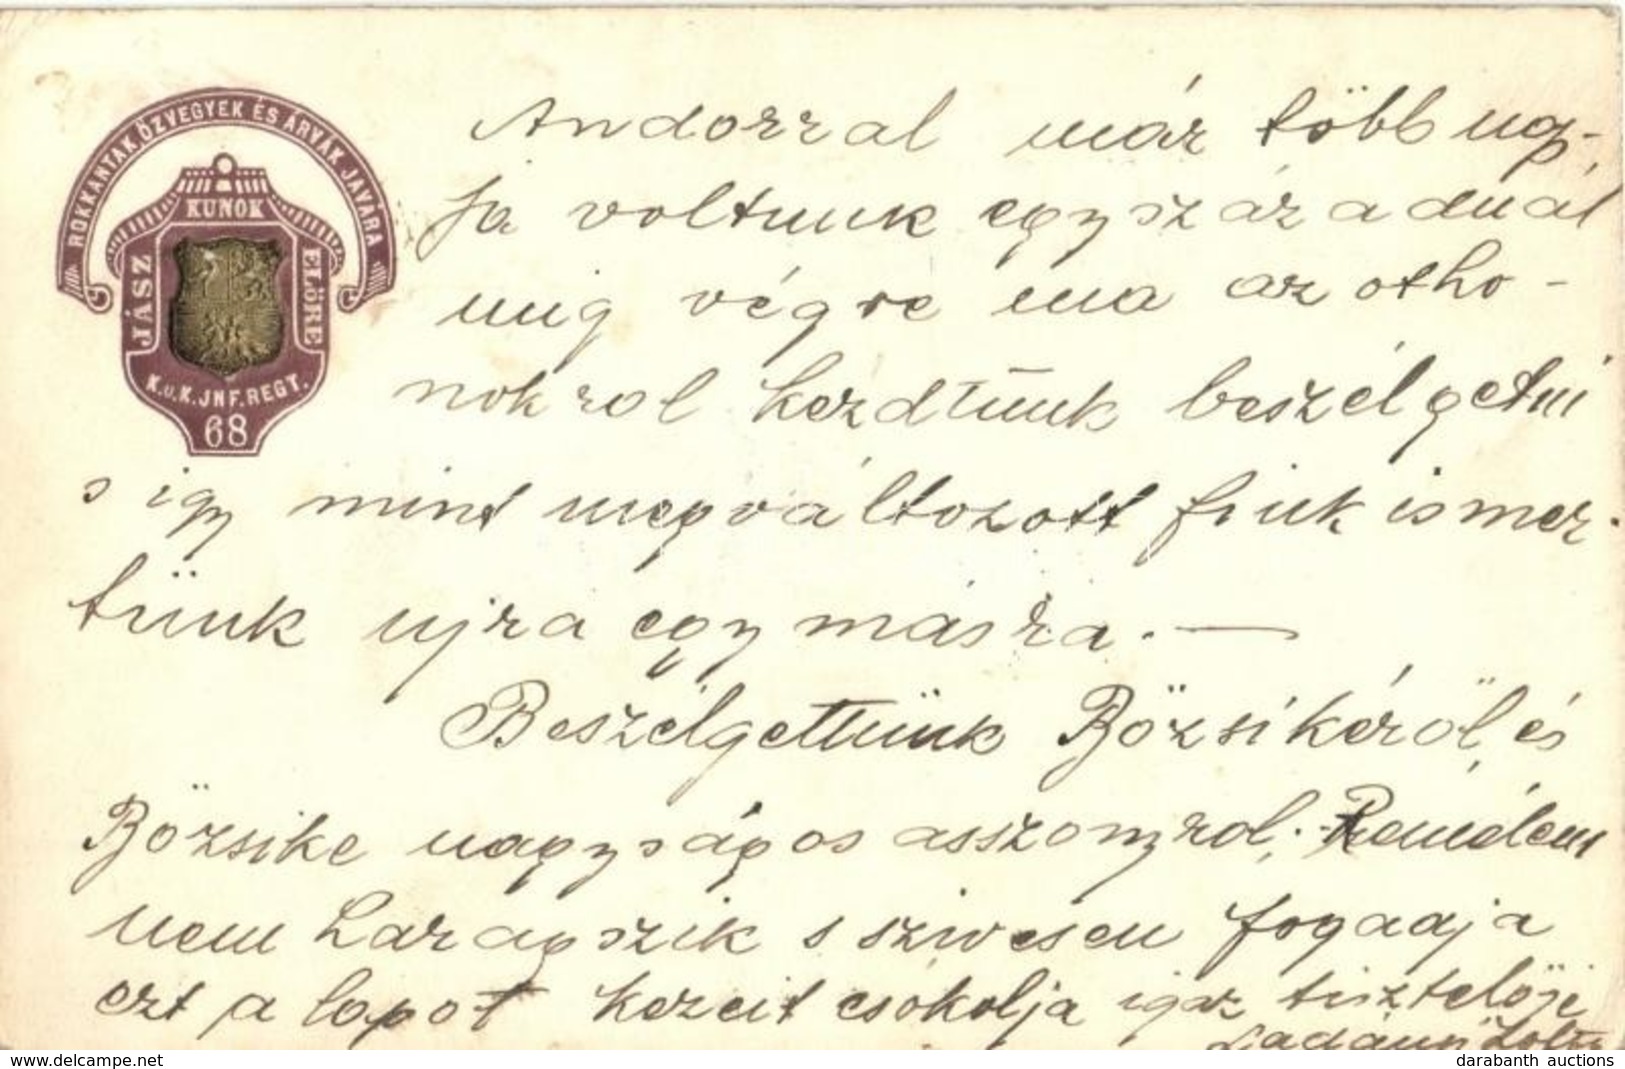 ROKKANTAK, ÖZVEGYEK ÉS ÁRVÁK JAVÁRA
KUNOK
JÁSZ
ELŐRE
K.u.K. JNF. REGT.
68
Andorral már több nap-
ja voltunk egy században
mig végre ma az otho-
nokrol kezdtünk beszélgetni
s igy mint megváltozott fiuk ismer-
tünk ujra egymásra. —
Beszélgettünk Bözsikéről, és
Bözsike nagyságos asszonyrol. Remélem
nem haragszik s szivesen fogadja
ezt a lapot kezeit csókolja igaz tisztelője
Ladányi Zolti
https://www.delcampe.net
darabanth auctions